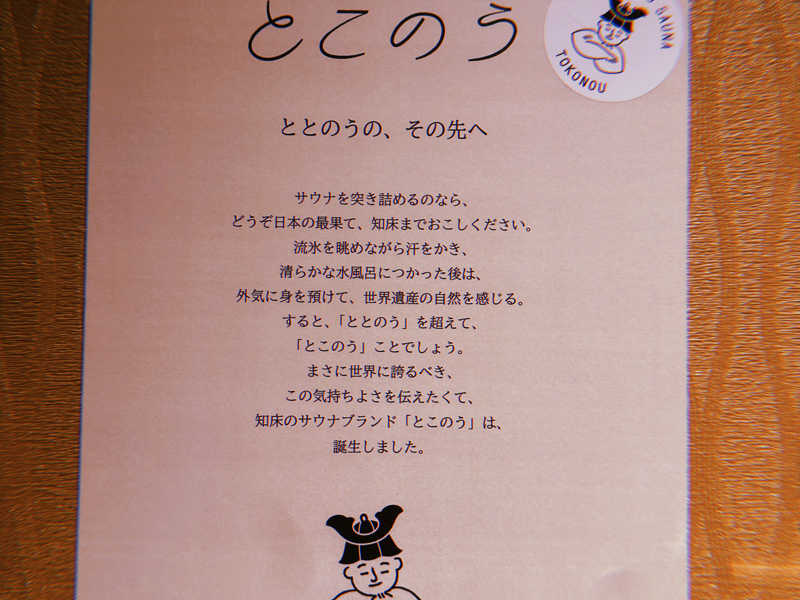 とこのう
SAUNA
TOKONOU
ととのうの、その先へ
サウナを突き詰めるのなら、
どうぞ日本の最果て、知床までおこしください。
流氷を眺めながら汗をかき、
清らかな水風呂につかった後は、
外気に身を預けて、世界遺産の自然を感じる。
すると、「ととのう」を超えて、
「とこのう」ことでしょう。
まさに世界に誇るべき、
この気持ちよさを伝えたくて、
知床のサウナブランド「とこのう」は、
誕生しました。